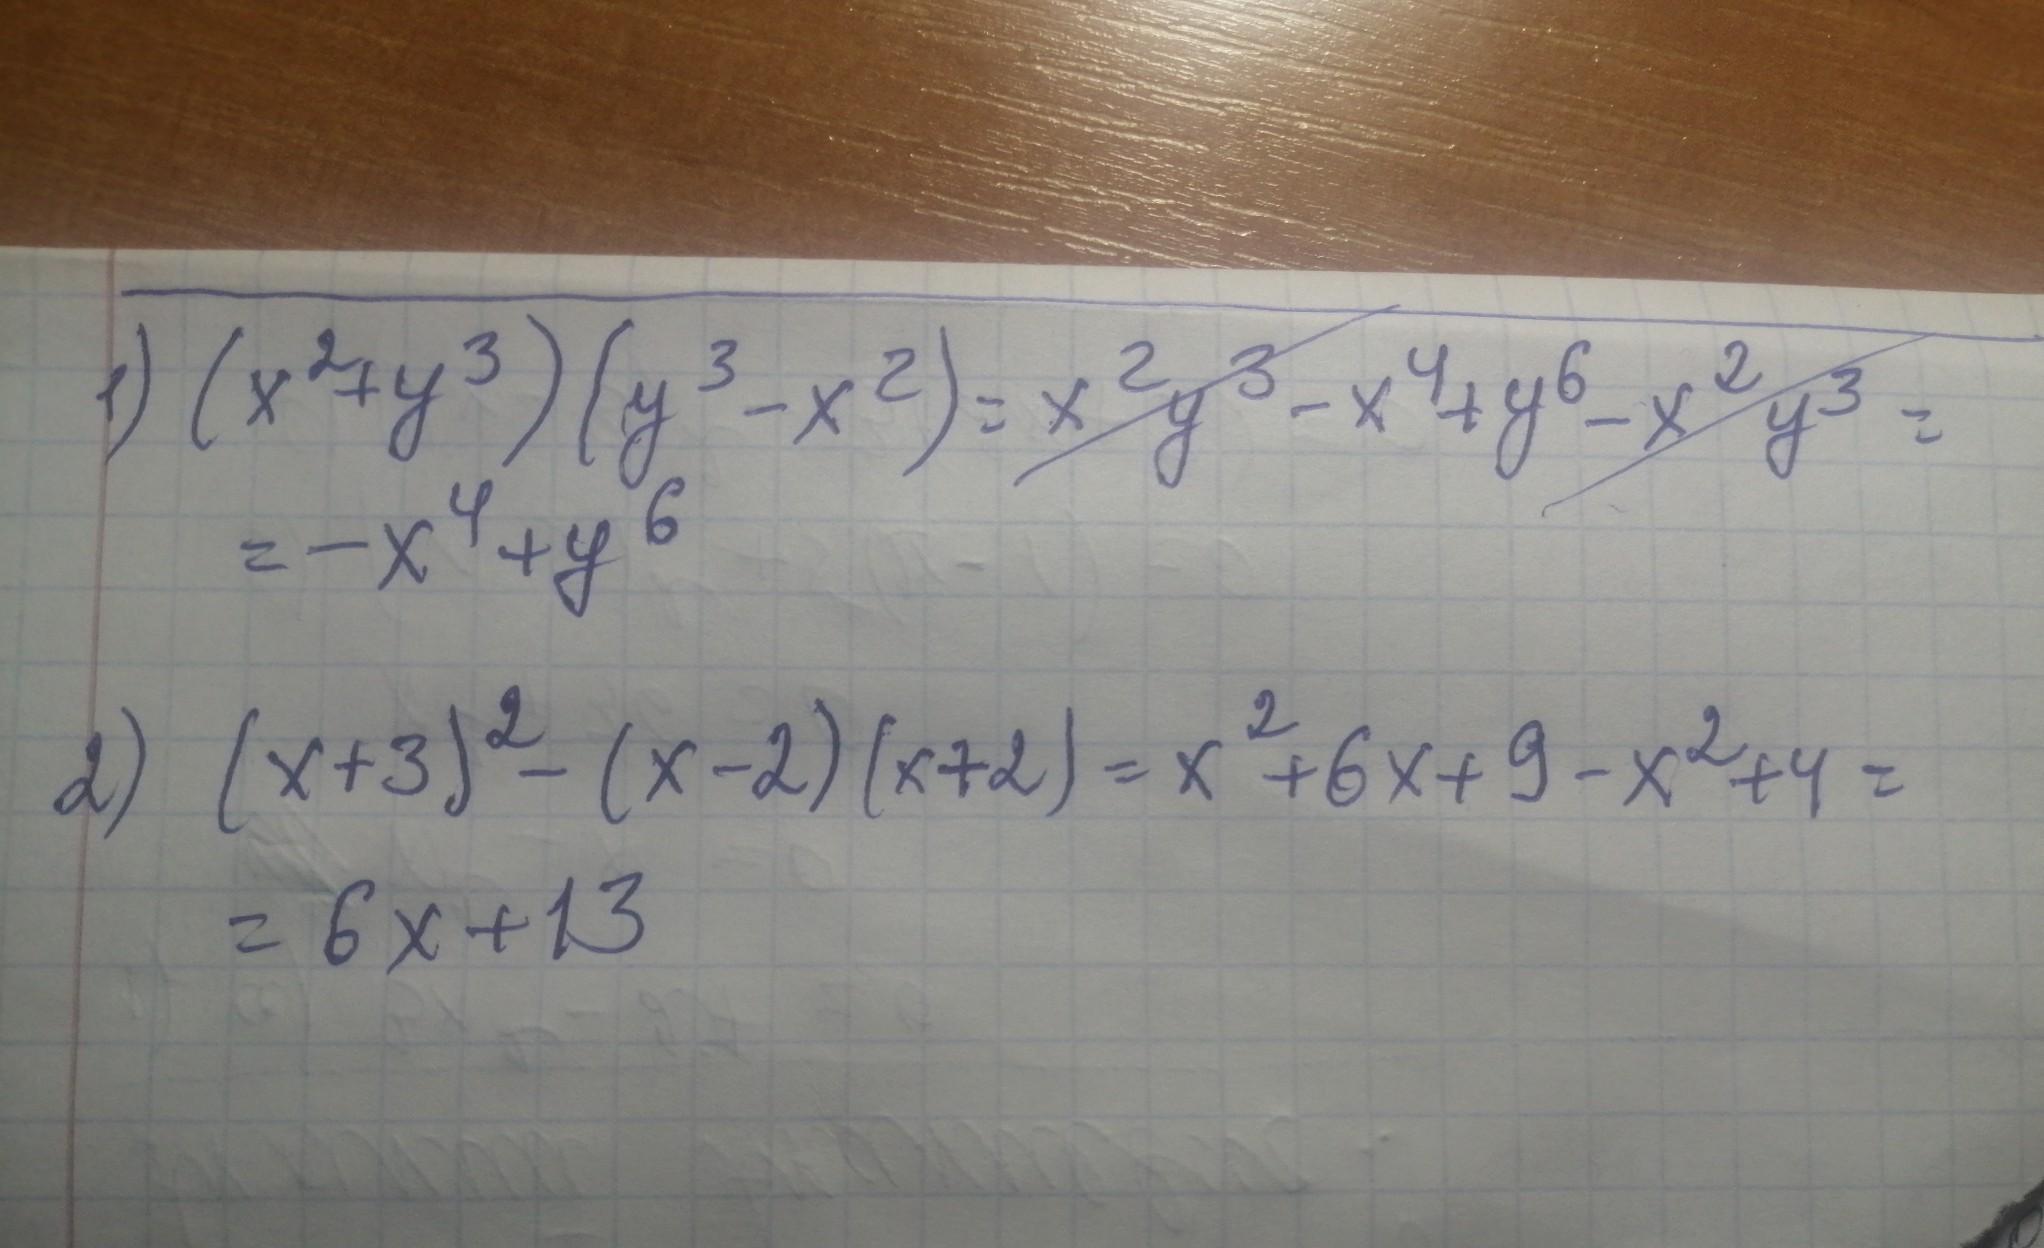 1) (x²+y³)(y³-x²)=x²y³-x⁴+y⁶-x²y³=
=-x⁴+y⁶
2) (x+3)²-(x-2)(x+2)=x²+6x+9-x²+4=
=6x+13